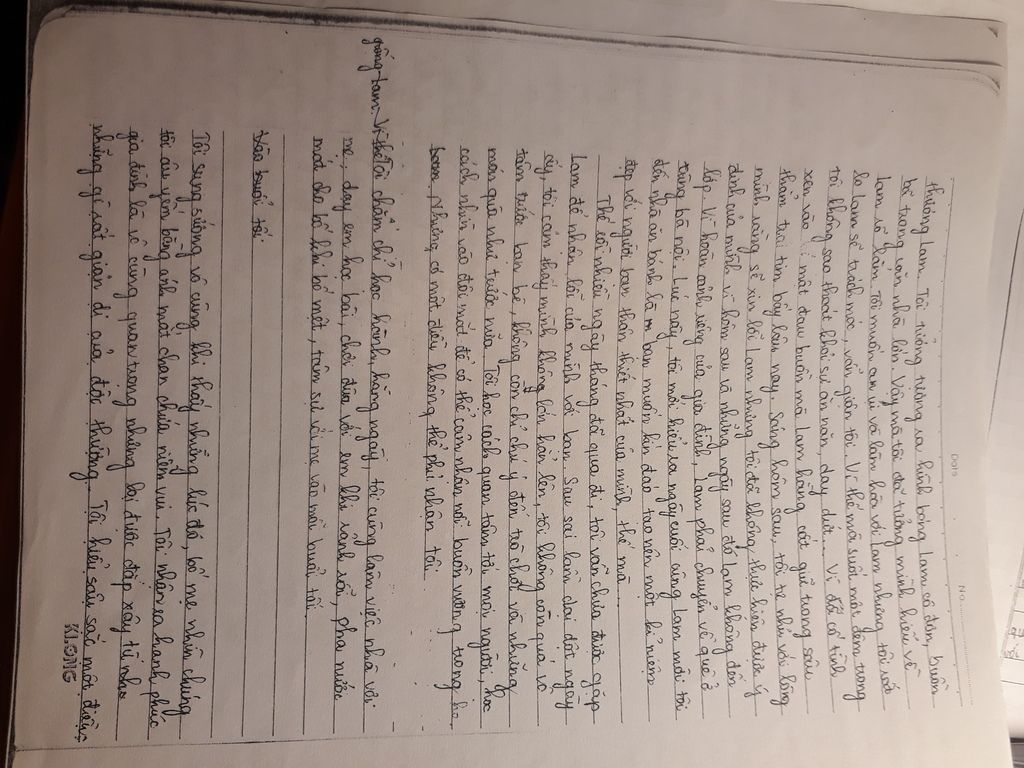 Date No.
thường lam. Tôi tưởng tượng ra hình bóng Lam cô đơn, buồn
bã trong căn nhà lớn. Vậy mà tôi đã tưởng mình hiểu về
Lam rõ lắm. Tôi muốn an ủi và làm hòa với Lam nhưng tôi sợ
là Lam sẽ trách móc, vẫn giận tôi. Vì thế mà suốt một đêm trong
tôi không sao thoát khỏi sự ăn năn, day dứt... Vì đã cố tình
xen vào nỗi mất đau buồn mà Lam hằng cất giữ trong sâu
thẳm trái tim bấy lâu nay. Sáng hôm sau, tôi tự nhủ với lòng
mình rằng sẽ xin lỗi Lam nhưng tôi đã không thực hiện được ý
định của mình vì hôm sau và những ngày sau đó Lam không đến
lớp. Vì hoàn cảnh riêng của gia đình, Lam phải chuyển về quê ở
cùng bà nội. Lúc này, tôi mới hiểu ra ngày cuối cùng Lam mời tôi
đến nhà ăn bánh là bạn muốn kín đáo tạo nên một kỉ niệm
đẹp với người bạn thân thiết nhất của mình, thế mà...
Thế rồi nhiều ngày tháng đã qua đi, tôi vẫn chưa được gặp
Lam để nhận lỗi của mình với bạn. Sau sai lầm dại dột ngày
ấy, tôi cảm thấy mình không lớn hẳn lên, tôi không còn quá vô
tâm trước bạn bè, không còn chỉ chú ý đến trò chơi và những
món quà như trước nữa. Tôi học cách quan tâm tới mọi người, học
cách nhìn vào đôi mắt để có thể cảm nhận nỗi buồn vương trong họ
Nhưng có một điều không thể phủ nhận tôi
giống Lam. Vì thế tôi chăm chỉ học hành, hằng ngày, tôi cùng làm việc nhà với
mẹ, dạy em học bài, chơi đùa với em khi rảnh rỗi, pha nước
mát cho bố khi bố mệt, tâm sự với mẹ vào mỗi buổi tối.
Vào buổi tối
Tôi sung sướng vô cùng khi thấy những lúc đó, bố mẹ nhìn chúng
tôi âu yếm bằng ánh mắt chan chứa niềm vui. Tôi nhận ra hạnh phúc
gia đình là vô cùng quan trọng nhưng lại được đắp xây từ như
những gì rất giản dị của đời thường. Tôi hiểu sâu sắc một điều:
KLONG